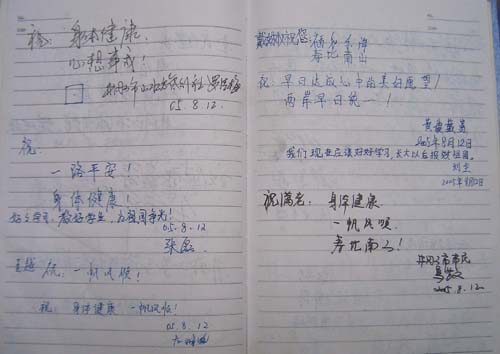 祝：身体健康，
心想事成！
05.8.12.
祝：
一路平安！
身体健康！
好好学习，教好学生，为祖国争光！
05.8.12
张磊
祝：一帆风顺！
祝：身体健康 一帆风顺！
05.8.12
祝您：福如东海
寿比南山
祝：早日达成心中的美好愿望！
两岸早日统一！
2005年8月12日
我们现在应该好好学习，长大以后报效祖国。
2005年8月12日
祝满老：身体健康
一帆风顺
寿比南山！
2005.8.12.